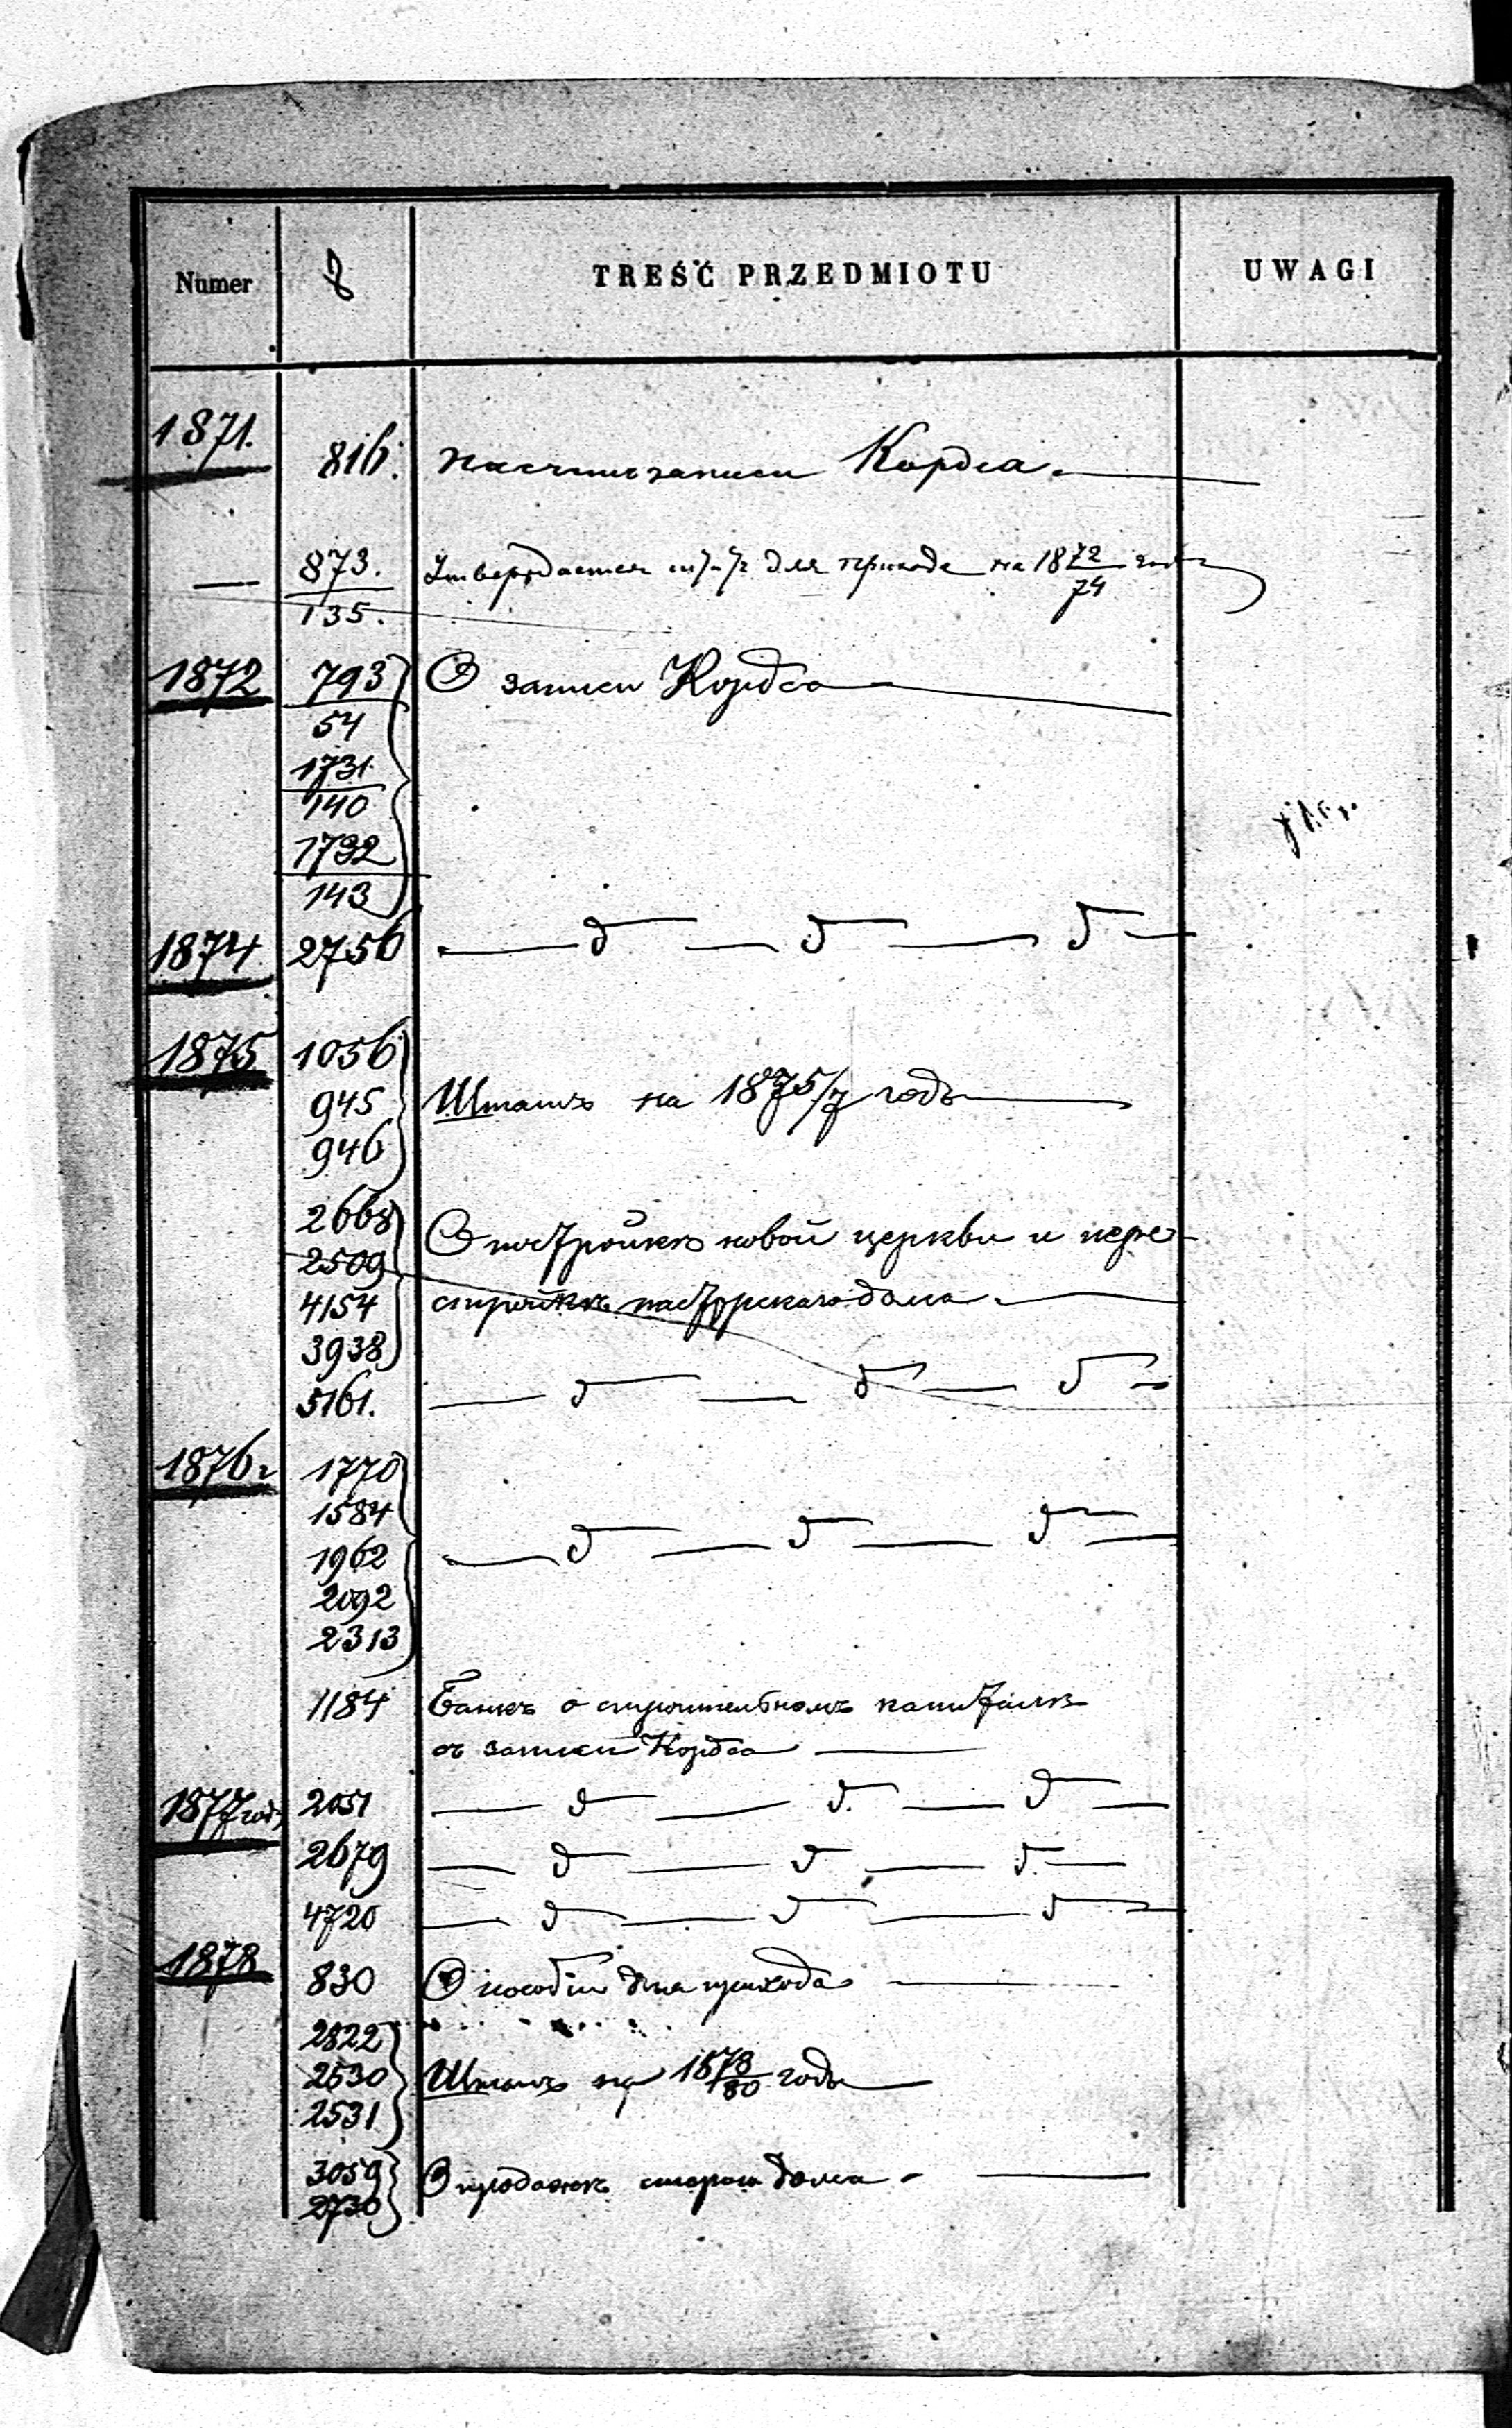 Numer № TREŚĆ PRZEDMIOTU UWAGI
1871. 816. записи Кордса.
873. Утверждается для прихода на 1872
135. 74
1872 793 О записи Кордса
54
1731
140
1732
143
1874 2756 — д — д — д —
1875 1056
945 Штатъ на 1875/7 годъ
946
2668 О постройкѣ новой церкви и пере-
2509
4154 стройкѣ пасторскаго дома.
3938
5161. — д — д — д —
1876 г 1770
1584
1962 — д — д — д —
2092
2313
1184 Банкъ о строительномъ капиталѣ
съ записи Кордса
1877 годъ 2051 — д — д. — д —
2679 — д — д — д. —
4720 — д — д — д —
1878 830 О пособіи для прихода
2822
2530 Штатъ на 1878/80 годъ
2531
3059 О продажѣ стараго дома
2730